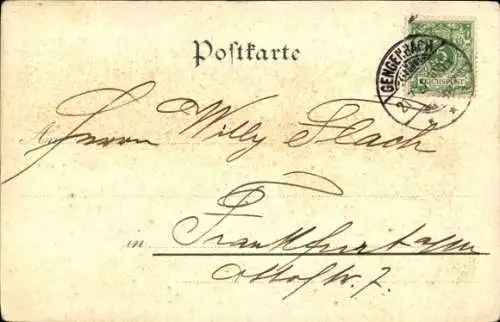 Postkarte
GENGENBACH
REICHSPOST
Herrn Willy Flach
in Frankfurt a/m
Ottostr. 7.